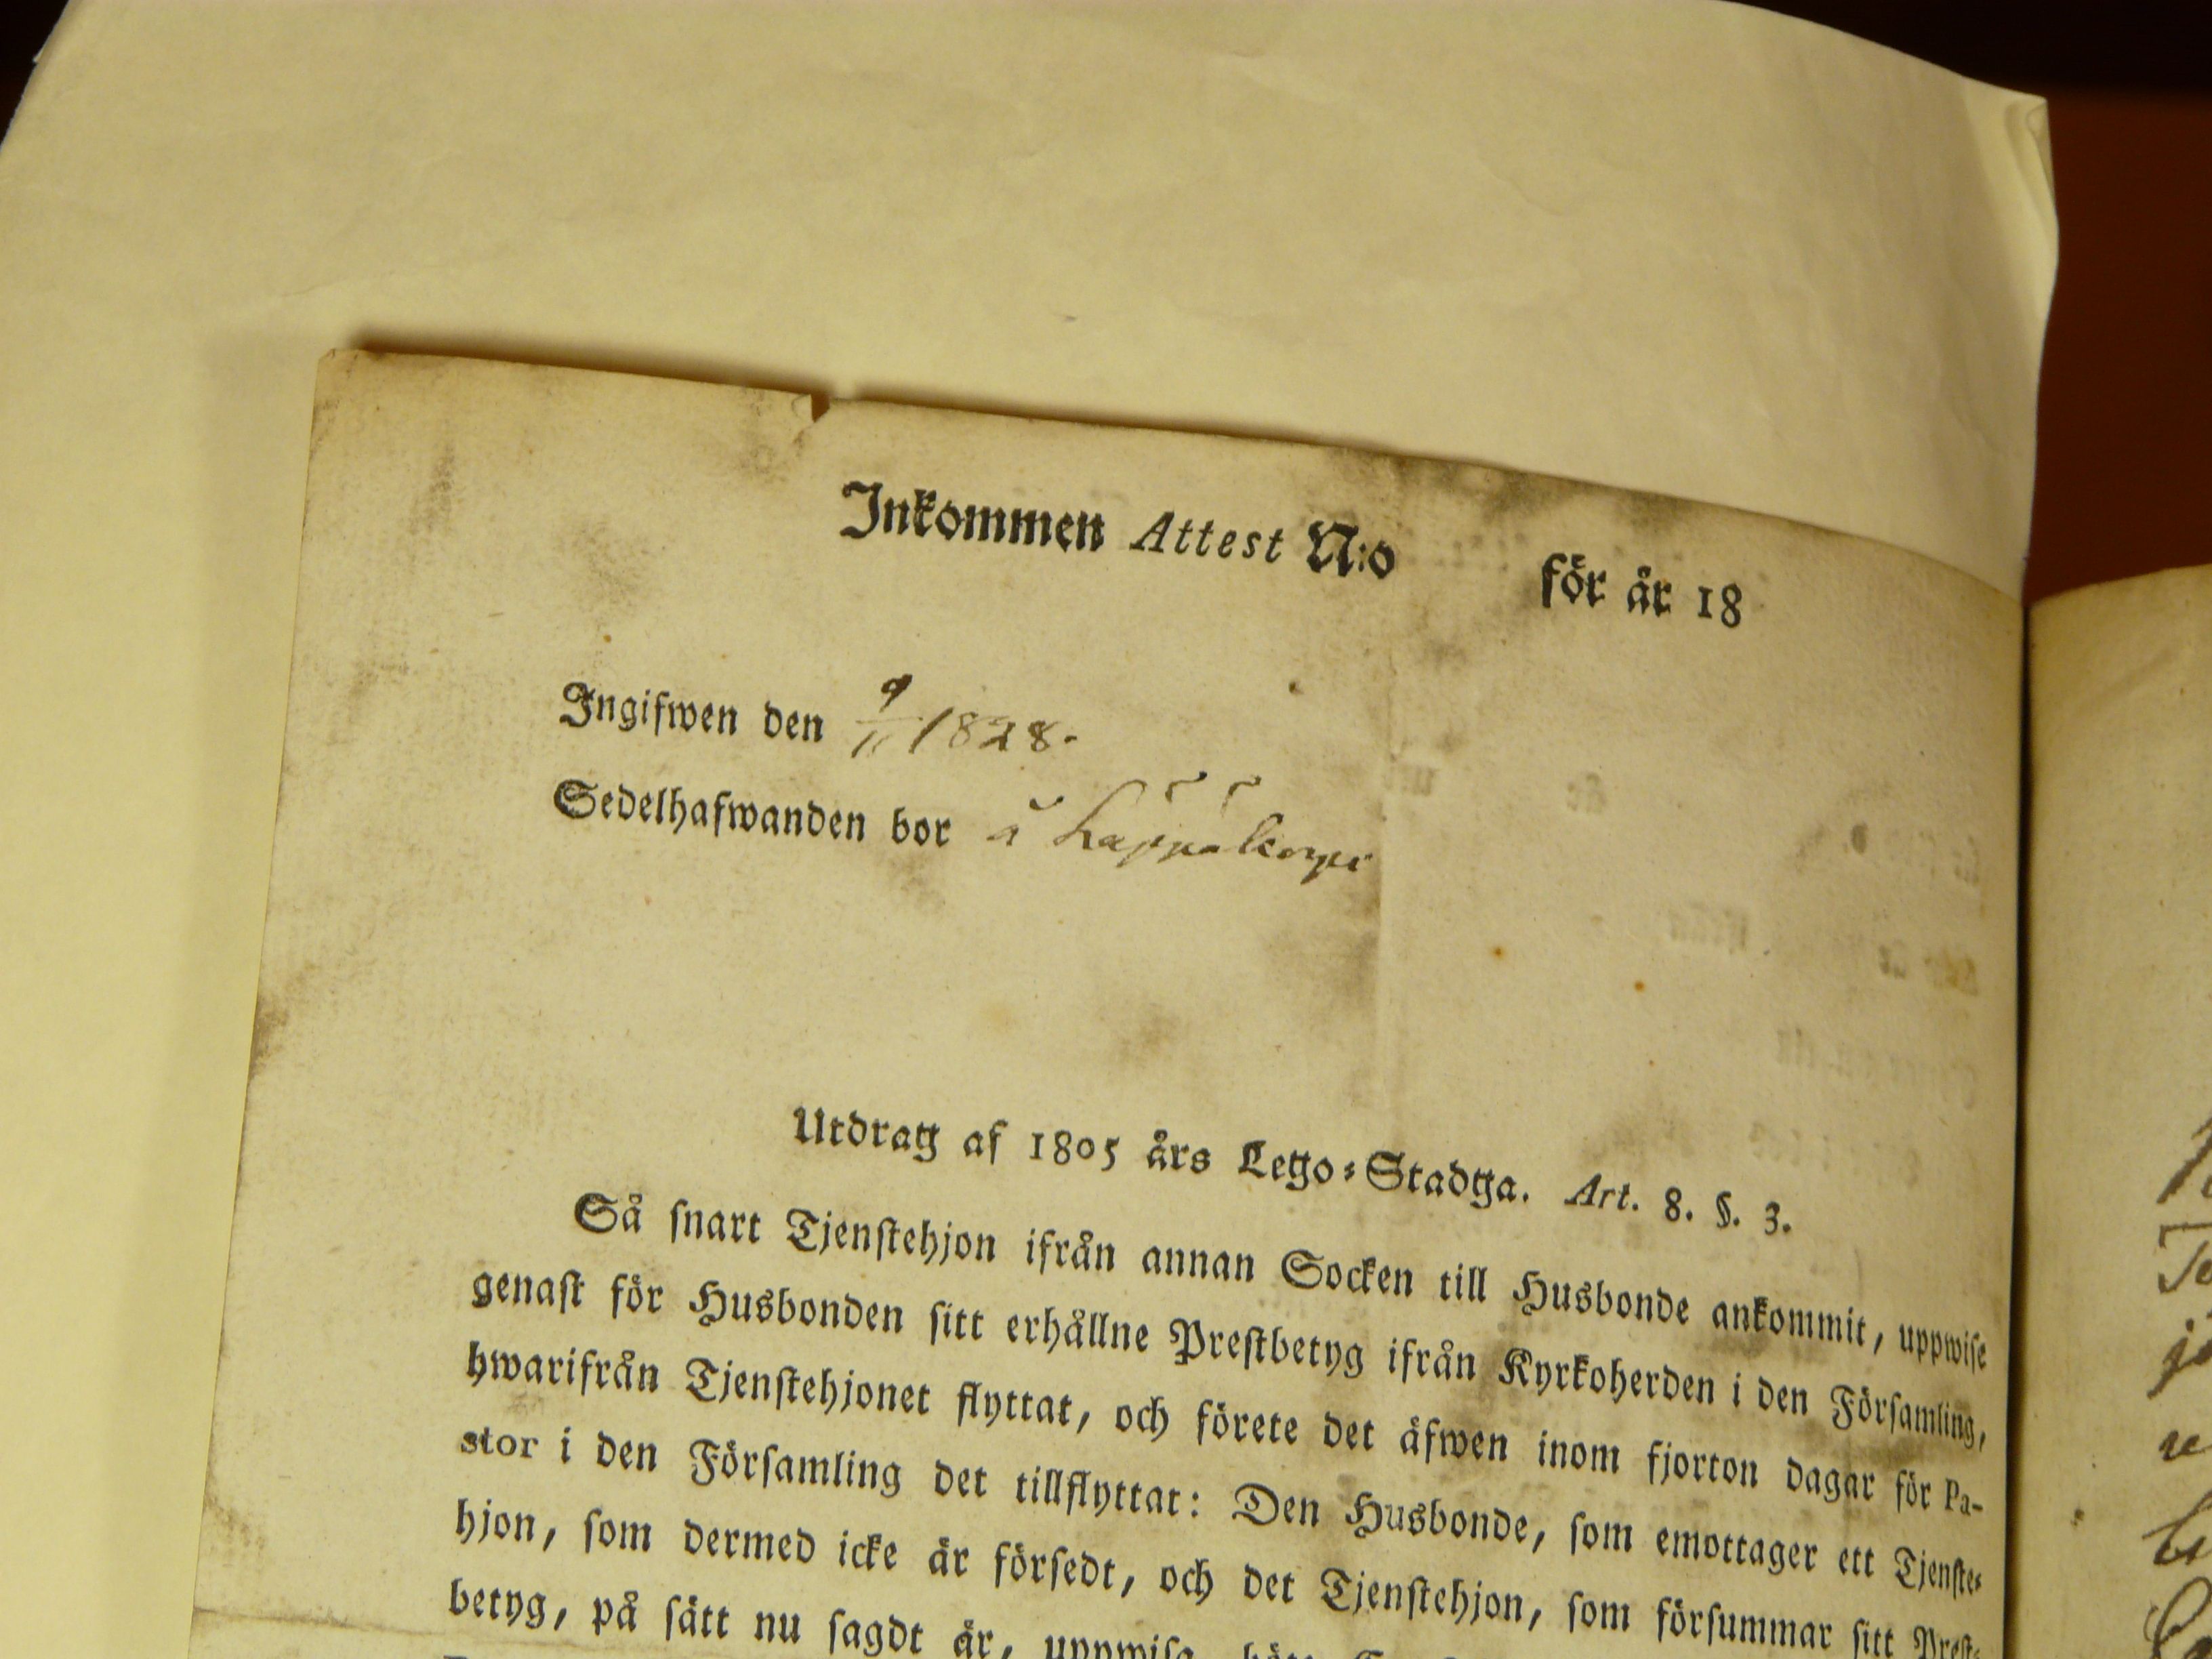 Inkommen Attest N:o för år 18
Ingifwen den 9/11 1828.
Sedelhafwanden bor å
Utdrag af 1805 års Lego-Stadga. Art. 8. §. 3.
Så snart Tjenstehjon ifrån annan Socken till Husbonde ankommit, uppwise
genast för Husbonden sitt erhållne Prestbetyg ifrån Kyrkoherden i den Församling,
hwarifrån Tjenstehjonet flyttat, och förete det äfwen inom fjorton dagar för Pa-
stor i den Församling det tillflyttat: Den Husbonde, som emottager ett Tjenste-
hjon, som dermed icke är försedt, och det Tjenstehjon, som försummar sitt Prest-
betyg, på sätt nu sagdt är, uppwisa